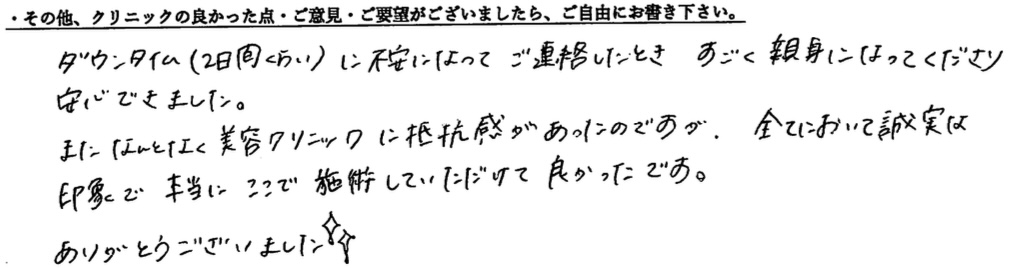 ・その他、クリニックの良かった点・ご意見・ご要望がございましたら、ご自由にお書き下さい。
ダウンタイム(2日間くらい)に不安になってご連絡したとき すごく親身になってくださり
安心できました。
またなんとなく美容クリニックに抵抗感があったのですが、全てにおいて誠実な
印象で本当にここで施術していただけて良かったです。
ありがとうございました